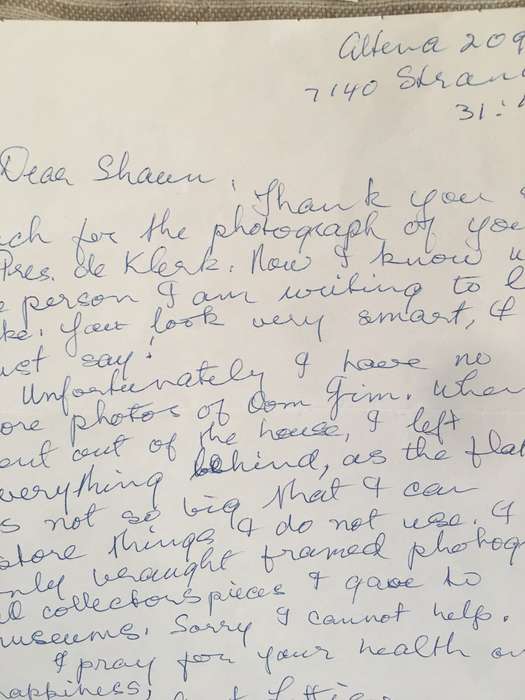 Altena 209
7140 Stran
31.
Dear Shaun, Thank you
ch for the photograph of you
Pres. de Klerk. Now I know w
e person I am writing to l
ke. You look very smart, I
ust say!
Unfortunately I have no
ore photos of Oom Gim. When
out of the house, I left
verything behind, as the flat
s not so big that I can
store things I do not use. I
nly braught framed photog
ll collectorspieces I gave to
museums. Sorry I cannot help.
I pray for your health an
appiness,